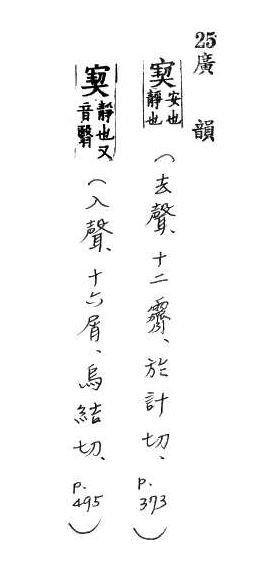 25廣韻
㝣安也靜也（去聲、十二霽、於計切、p.373）
㝣靜也又音翳（入聲、十六屑、烏結切、p.495）